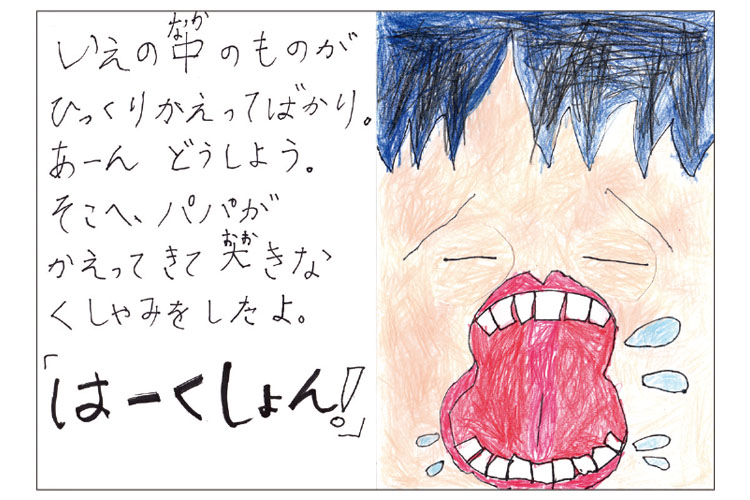 いえの中のものが
ひっくりかえってばかり。
あーん どうしよう。
そこへ、パパが
かえってきて大きな
くしゃみをしたよ。
「はーくしょん!。」